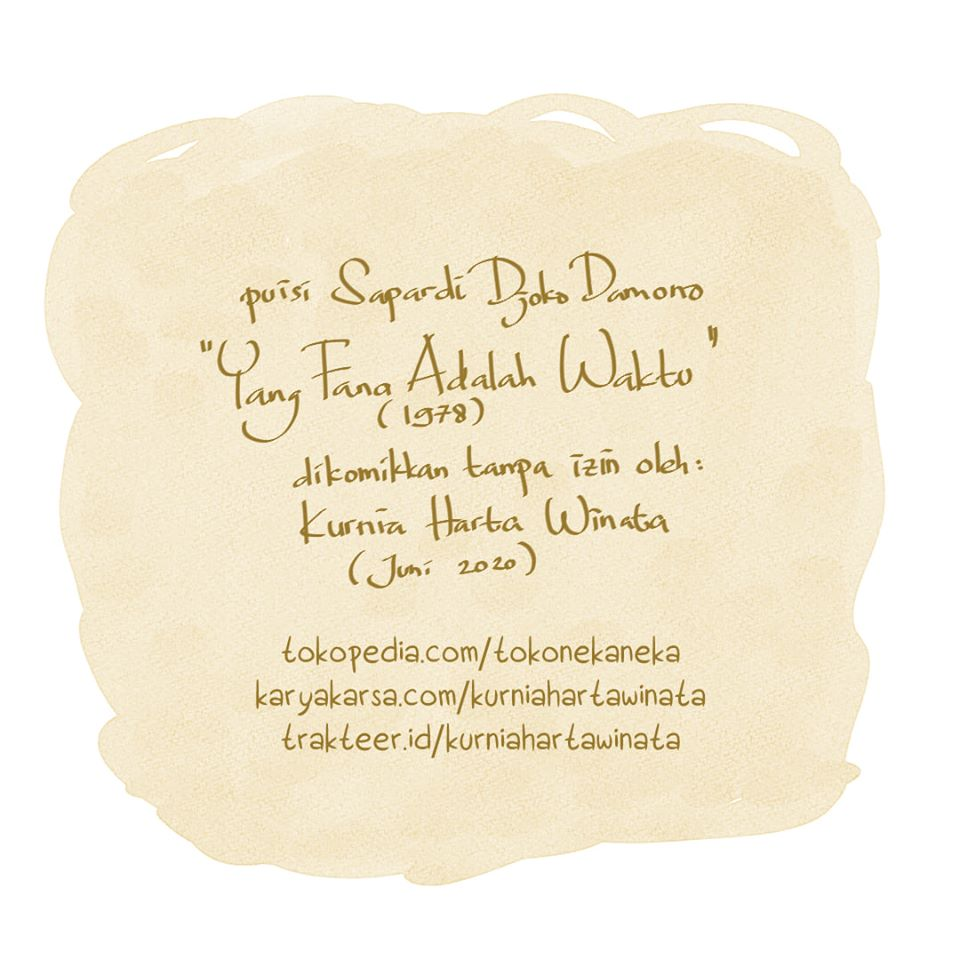 puisi Sapardi Djoko Damono
"Yang Fana Adalah Waktu"
(1978)
dikomikkan tanpa izin oleh:
Kurnia Harta Winata
(Juni 2020)
tokopedia.com/tokonekaneka
karyakarsa.com/kurniahartawinata
trakteer.id/kurniahartawinata